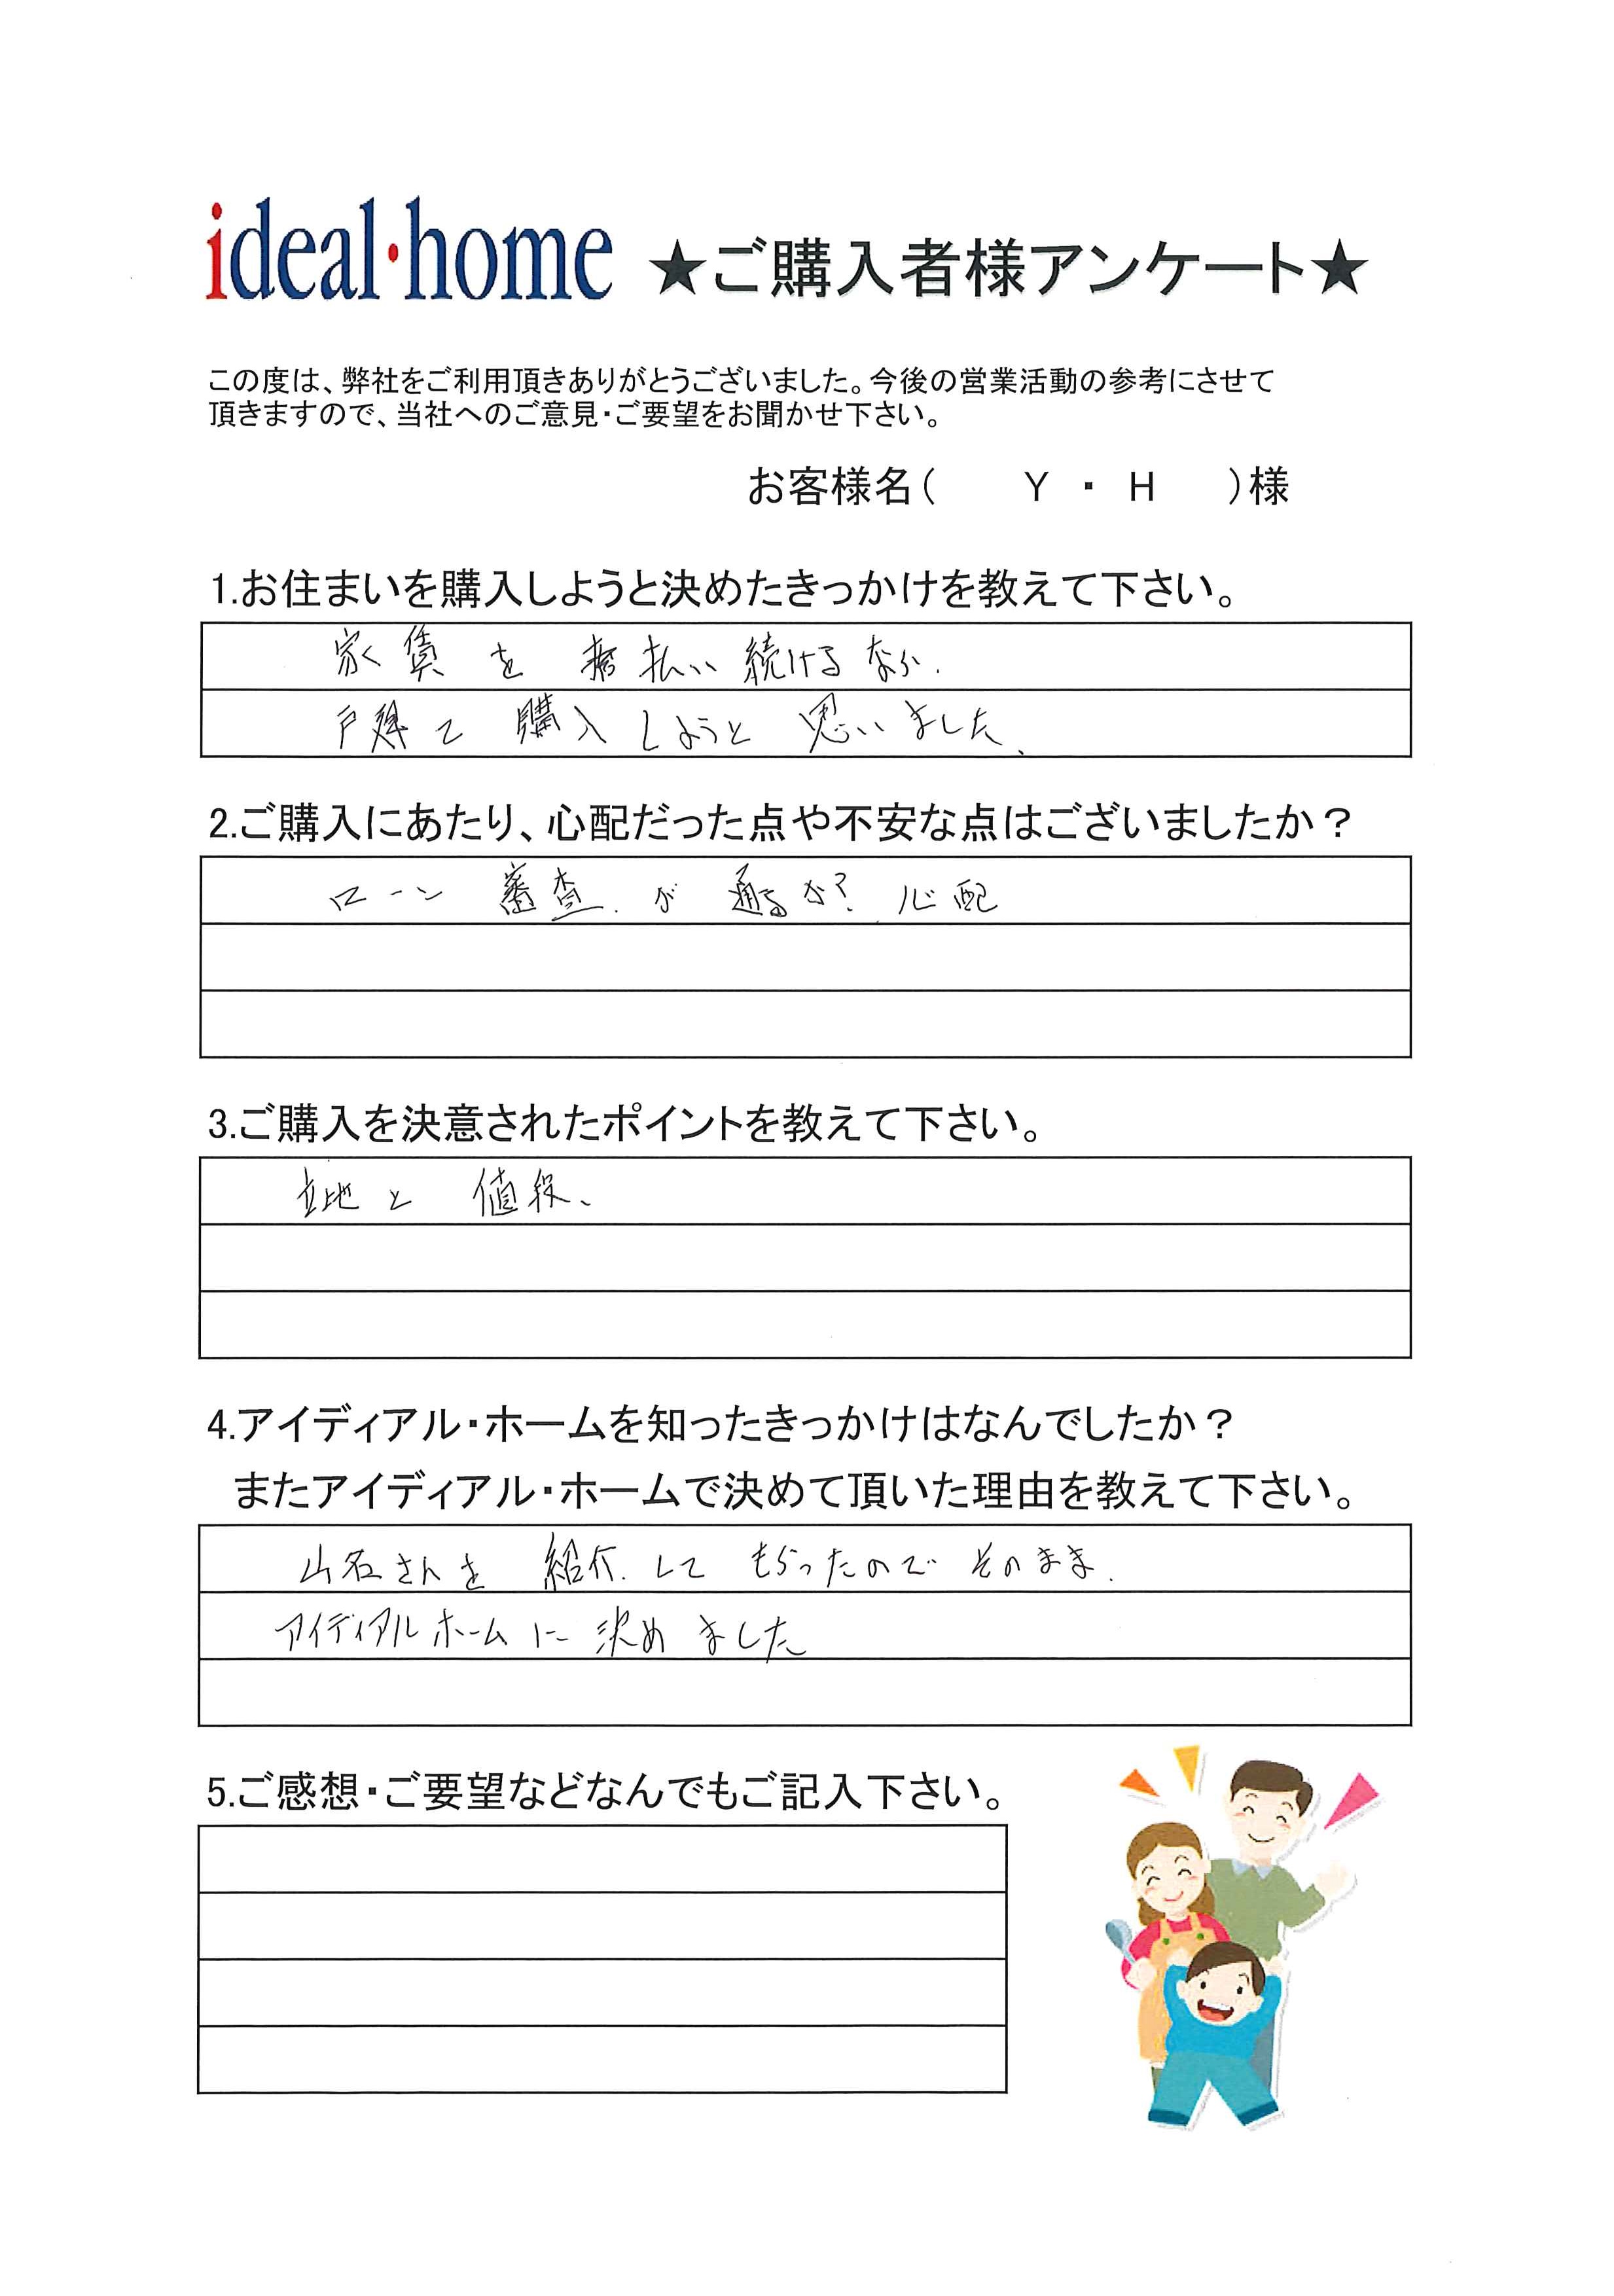 ideal·home ★ご購入者様アンケート★
この度は、弊社をご利用頂きありがとうございました。今後の営業活動の参考にさせて
頂きますので、当社へのご意見・ご要望をお聞かせ下さい。
お客様名( Y ・ H )様
1.お住まいを購入しようと決めたきっかけを教えて下さい。
家賃を 払い続けるなら.
戸建て 購入しようと 思いました.
2.ご購入にあたり、心配だった点や不安な点はございましたか？
ローン 審査.が 通るか？ 心配
3.ご購入を決意されたポイントを教えて下さい。
立地と 値段、
4.アイディアル・ホームを知ったきっかけはなんでしたか？
またアイディアル・ホームで決めて頂いた理由を教えて下さい。
山名さんを 紹介.して もらったので そのまま.
アイディアルホームに 決めました
5.ご感想・ご要望などなんでもご記入下さい。